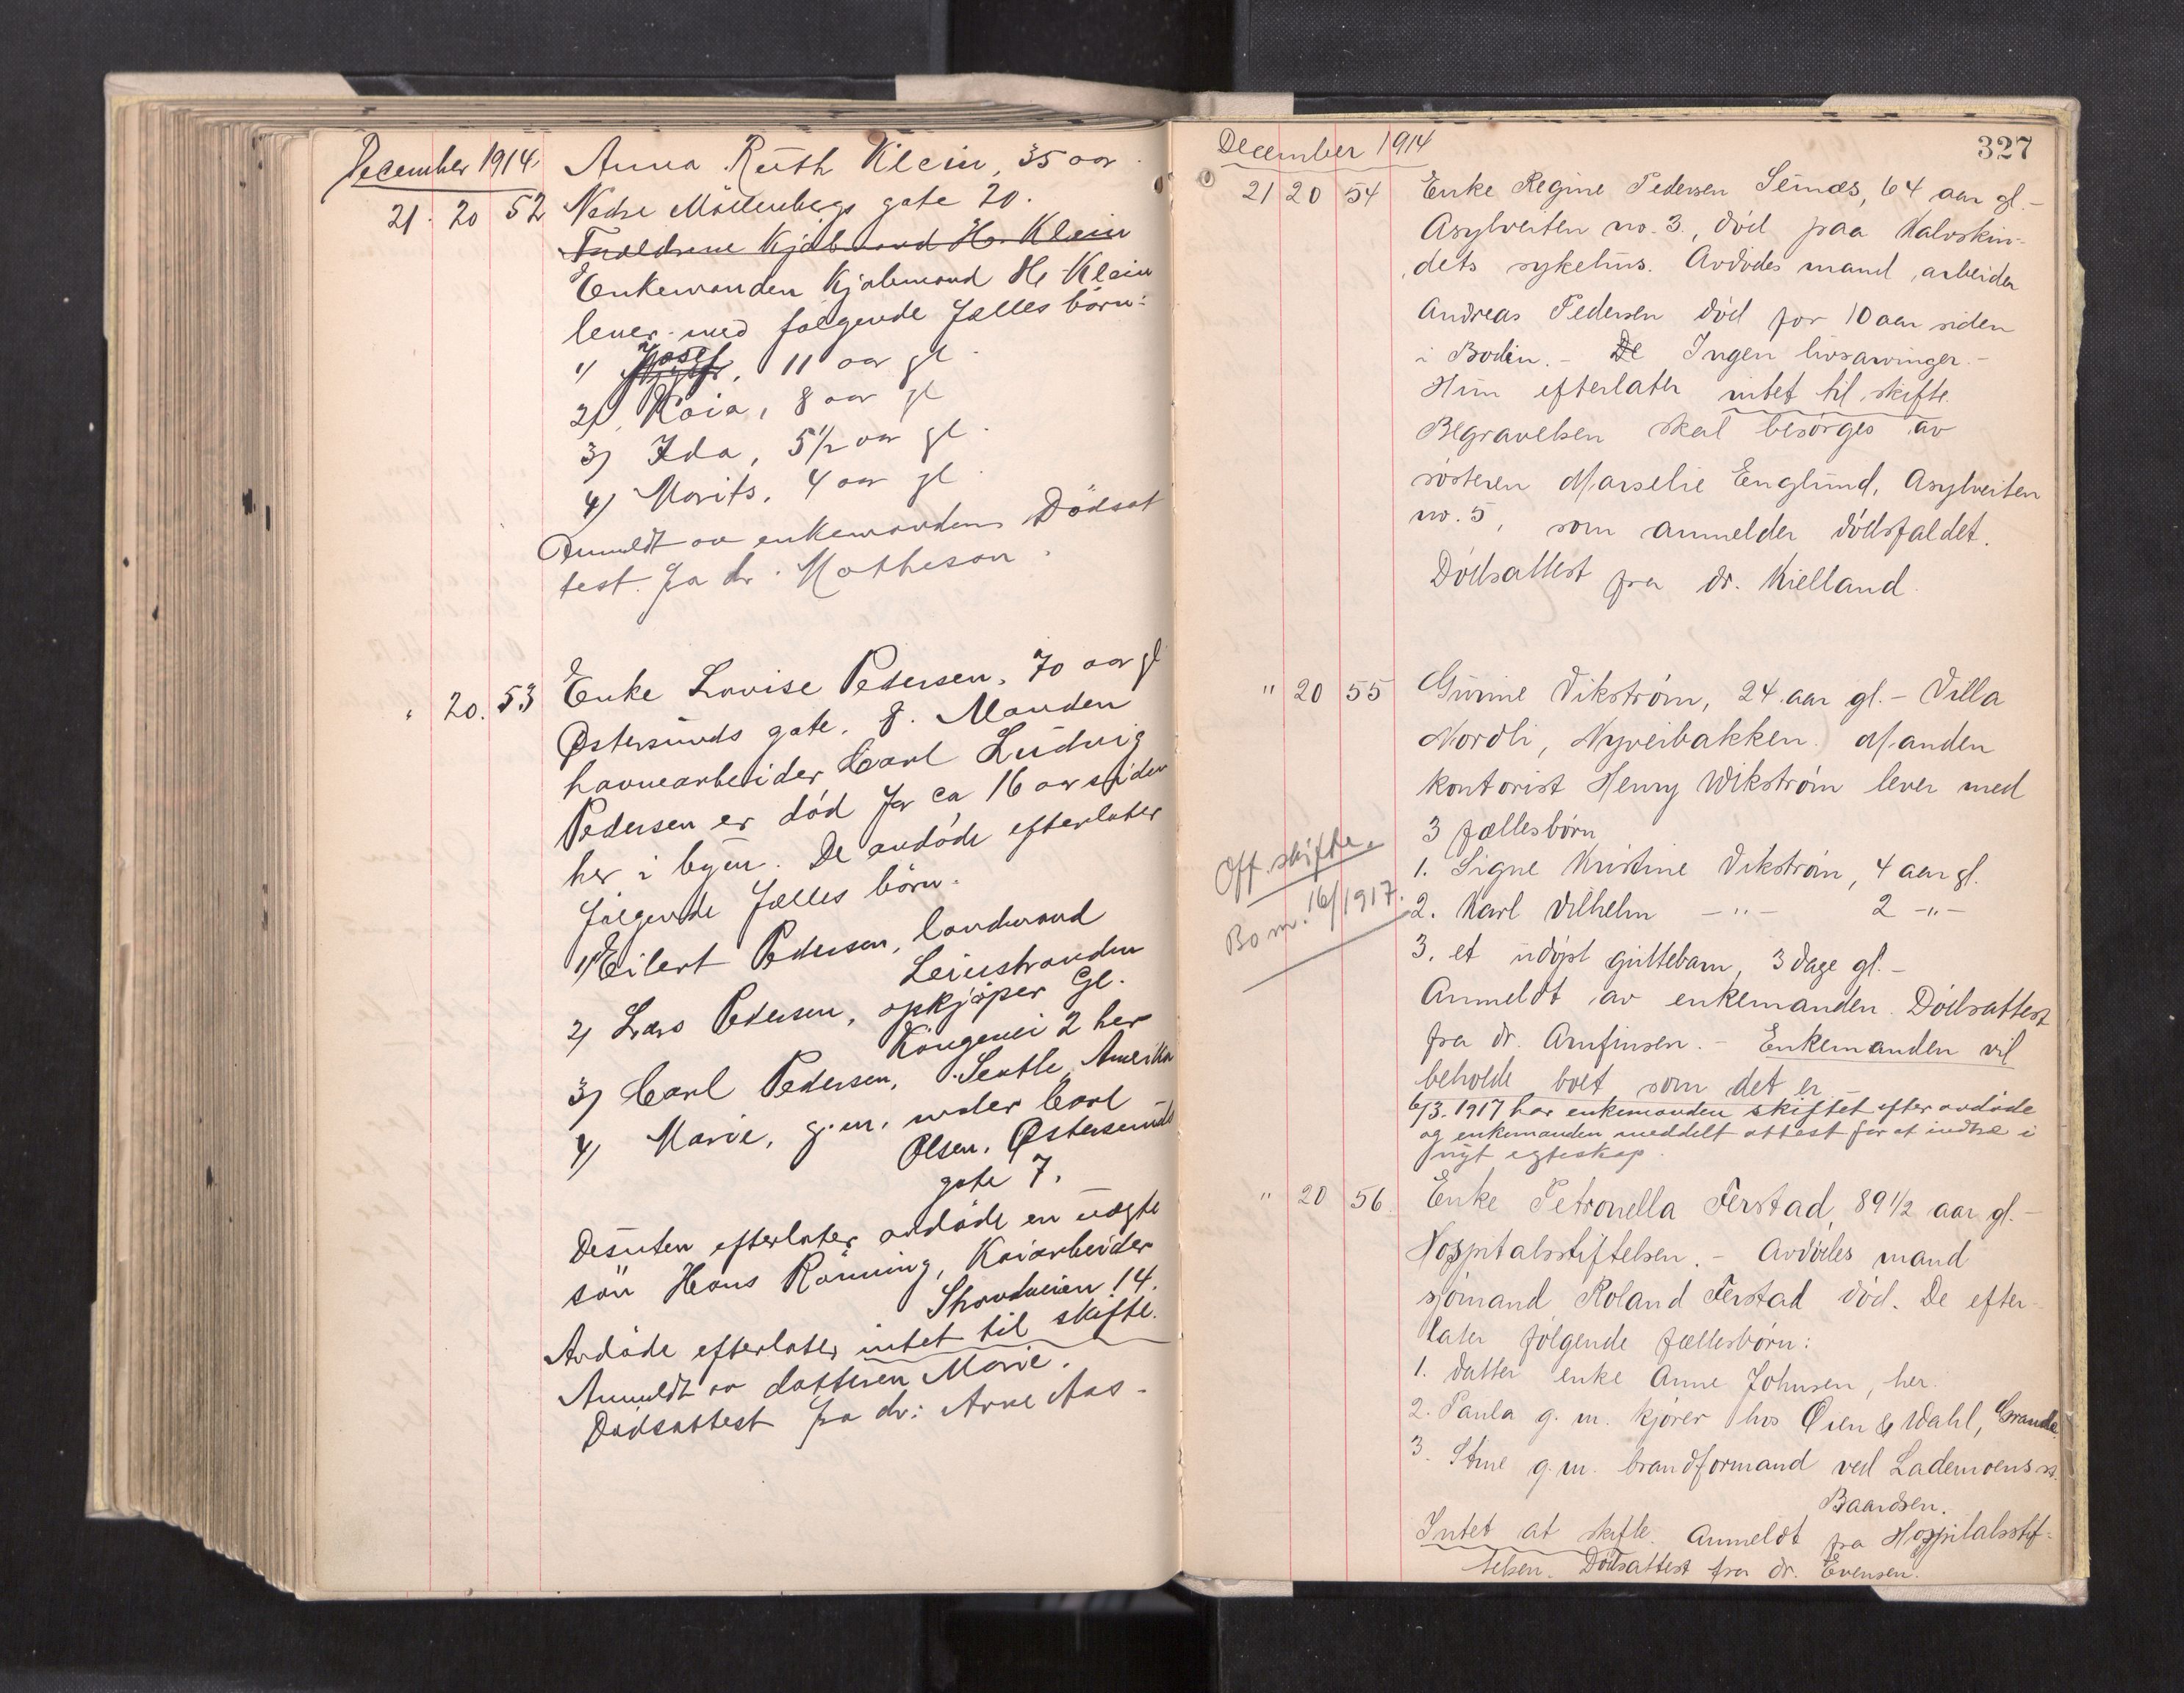 December 1914
Anna Ruth Klein, 35 aar
21. 20 52 Nedre Möllenbergs gate 20.
Forældrene Kjøbmand H. Klein
Enkemanden Kjøbmand H. Klein
lever med følgende fælles børn:
1) Josef, 11 aar gl.
2) Kaia, 8 aar gl
3) Ida, 5 1/2 aar gl.
4) Morits, 4 aar gl.
Anmeldt av enkemanden Dödsat
test fra dr. Matheson.
" 20. 53 Enke Lovise Pedersen, 70 aar gl
Østersunds gate. 8. Manden
havnearbeider Carl Ludvig
Pedersen er död for ca 16 aar siden
her i byen. De avdöde efterlater
følgende fælles börn.
1) Eilert Pedersen, landmand
Leinstranden
2) Lars Pedersen, opkjöper Gl.
Kongevei 2 her
3) Carl Pedersen, Seatle, Amerika
4) Marie, g. m. maler Carl
Olsen, Østersunds
gate 7.
Desuten efterlater avdöde en uægte
sön Hans Rönning, Kaiarbeider
Strandveien 14.
Avdöde efterlater intet til skifte.
Anmeldt av datteren Marie.
Dödsattest fra dr: Arne Aas.
December 1914
327
21 20 54 Enke Regine Pedersen Semæs, 64 aar gl. -
Asylveiten no. 3., död paa Kalvskin-
dets sykehus. Avdödes mand, arbeider
Andreas Pedersen död for 10 aar siden
i Bodin. - De Ingen livsarvinger. -
Hun efterlater intet til skifte.
Begravelsen skal besörges av
sösteren Marselie Englund, Asylveiten
no. 5, som anmelder dödsfaldet.
Dödsattest fra dr. Kielland.
" 20 55 Gunine Vikström, 24 aar gl. - Villa
Nordli, Nyveibakken. Manden
kontorist Henry Wikström lever med
3 fællesbörn
1. Signe Kristine Vikström, 4 aar gl.
2. Karl Vilhelm -"- 2 -"-
Off. skifte.
Bo nr. 16/1917.
3. et udöpt guttebarn, 3 dage gl. -
Anmeldt av enkemanden. Dödsattest
fra dr. Arnfinsen. - Enkemanden vil
beholde boet som det er. -
6/3. 1917 har enkemanden skiftet efter avdöde
og enkemanden meddelt attest for at indtræ i
nyt egteskap.
" 20 56. Enke Petronella Ferstad, 89 1/2 aar gl. -
Hospitalsstiftelsen. - Avdödes mand
sjömand Roland Ferstad död. De efter-
later fölgende fællesbörn:
1. datter enke Anne Johnsen, her.
2. Paula g. m. kjörer hos Öien & Wahl, Grande.
3. Stine g. m. brandformand ved Lademoens st.
Baardsen.
Intet at skifte. Anmeldt fra Hospitalsstif-
telsen. Dödsattest fra dr. Evensen.